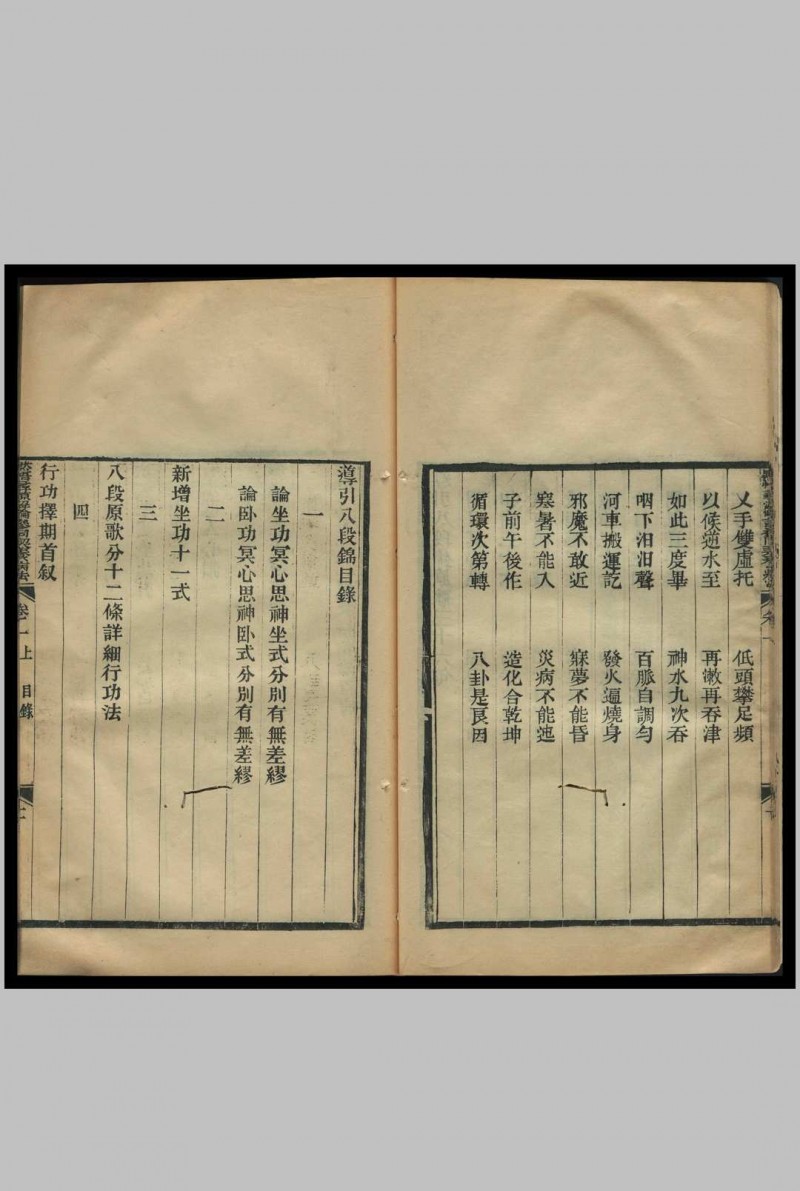 乂手雙虛托　低頭攀足頻
以候逆水至　再漱再吞津
如此三度畢　神水九次吞
咽下汨汨聲　百脈自調勻
河車搬運訖　發火遍燒身
邪魔不敢近　寐夢不能昏
寒暑不能入　災病不能迍
子前午後作　造化合乾坤
循環次第轉　八卦是良因
導引八段錦目錄
一
論坐功冥心思神坐式分別有無差繆
論卧功冥心思神卧式分別有無差繆
二
新增坐功十一式
三
八段原歌分十二條詳細行功法
四
行功擇期首叙
卷一上　目錄